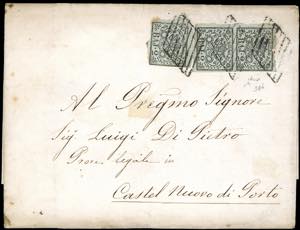 BAJ 2
BAJ 2
BAJ 2
Al Pregmo Signore
Sig Luigi Di Pietro
Proc.e legale in
Castel Nuovo di Porto